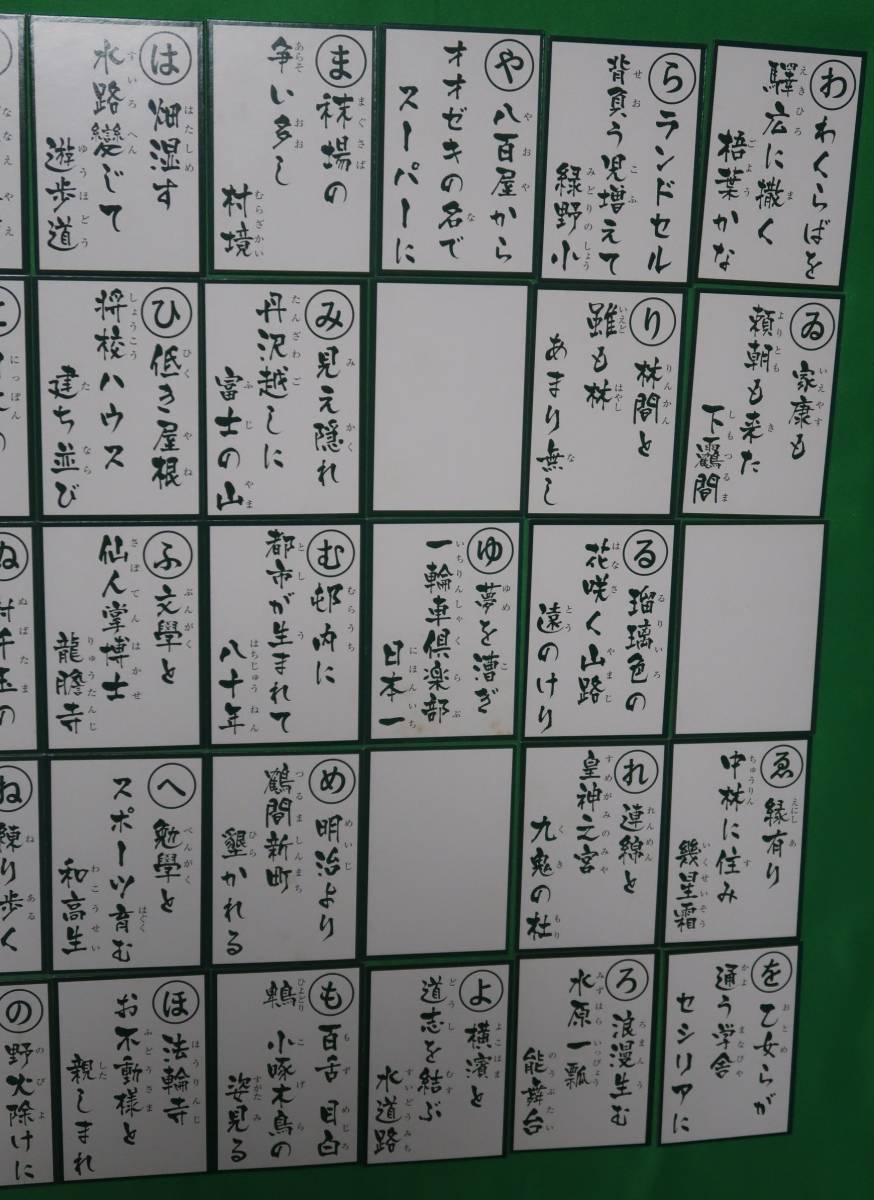 わ
わくらばを
驛広に撒く
梧葉かな
ゐ
家康も
頼朝も来た
下鶴間
ゑ
縁有り
中林に住み
幾星霜
を
乙女らが
通う学舎
セシリアに
ら
ランドセル
背負う児増えて
緑野小
り
林間と
雖も林
あまり無し
る
瑠璃色の
花咲く山路
遠のけり
れ
連綿と
皇神之宮
九鬼の杜
ろ
浪漫生む
水原一瓢
能舞台
や
八百屋から
オオゼキの名で
スーパーに
ゆ
夢を漕ぎ
一輪車倶楽部
日本一
よ
横濱と
道志を結ぶ
水道路
ま
秣場の
争い多し
村境
み
見え隠れ
丹沢越しに
富士の山
む
邨内に
都市が生まれて
八十年
め
明治より
鶴間新町
墾かれる
も
百舌 目白
鵯 小啄木鳥の
姿見る
は
畑湿す
水路變じて
遊歩道
ひ
低き屋根
将校ハウス
建ち並び
ふ
文學と
仙人掌博士
龍膽寺
へ
勉學と
スポーツ育む
和高生
ほ
法輪寺
お不動様と
親しまれ
ぬ
ね
練り歩く
の
野火除けに